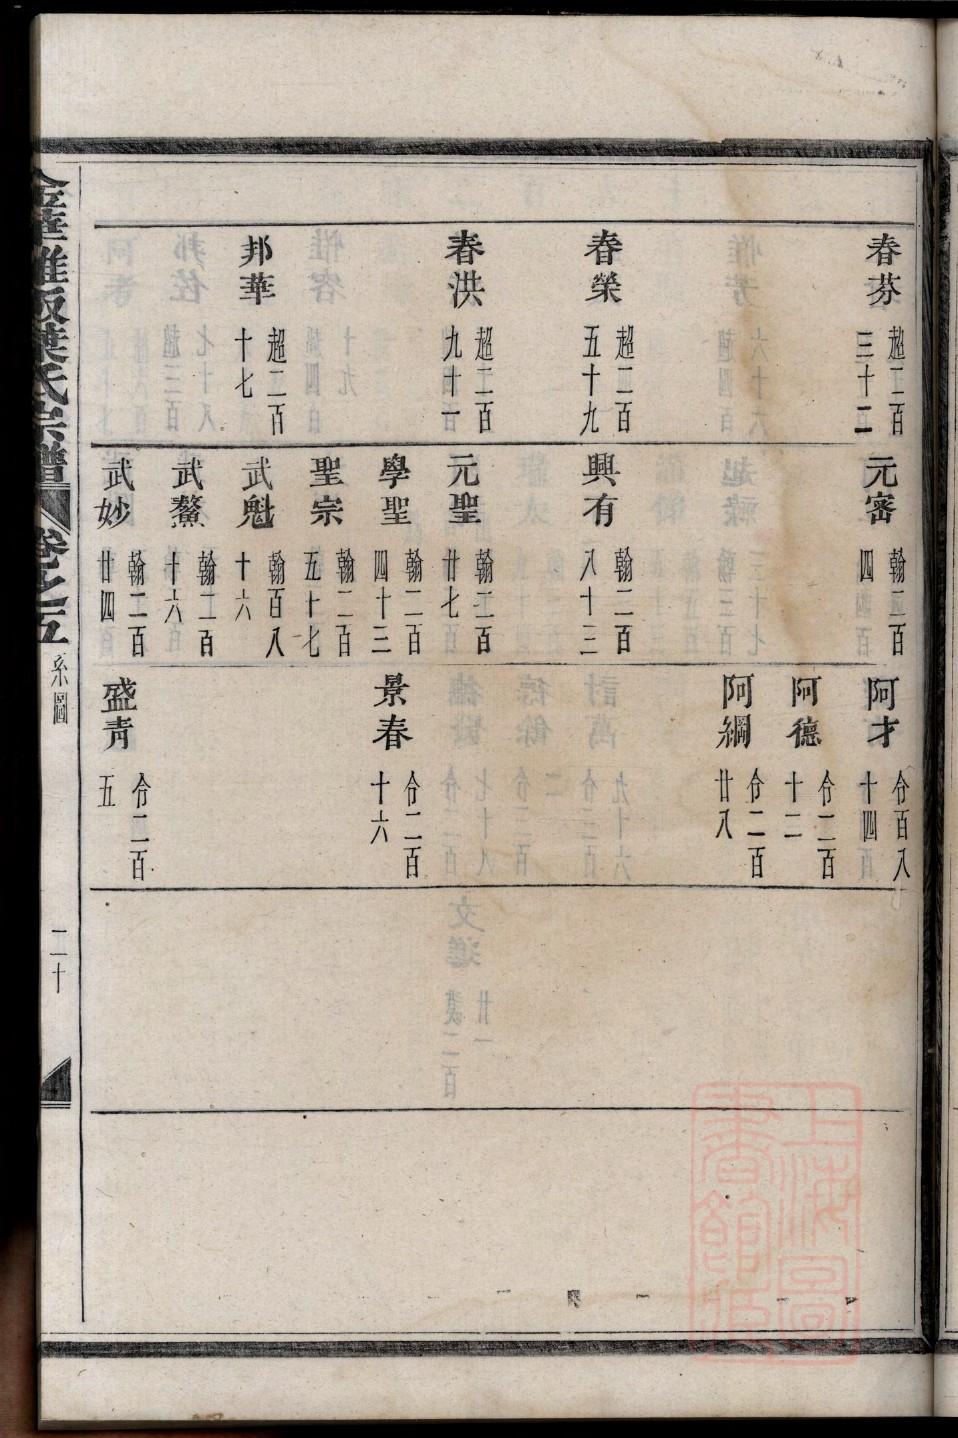 春芬 超二百三十二
春榮 超二百五十九
春洪 超二百九十一
邦華 超二百十七
元密 翰二百四
興有 翰二百八十三
元聖 翰二百廿七
學聖 翰二百四十三
聖宗 翰二百五十七
武魁 翰百八十六
武鰲 翰二百十六
武妙 翰二百廿四
阿才 令百八十四
阿德 令二百十二
阿綱 令二百廿八
景春 令二百十六
盛青 令二百五
葉氏宗譜 卷之五 系圖 二十
上海圖書館藏